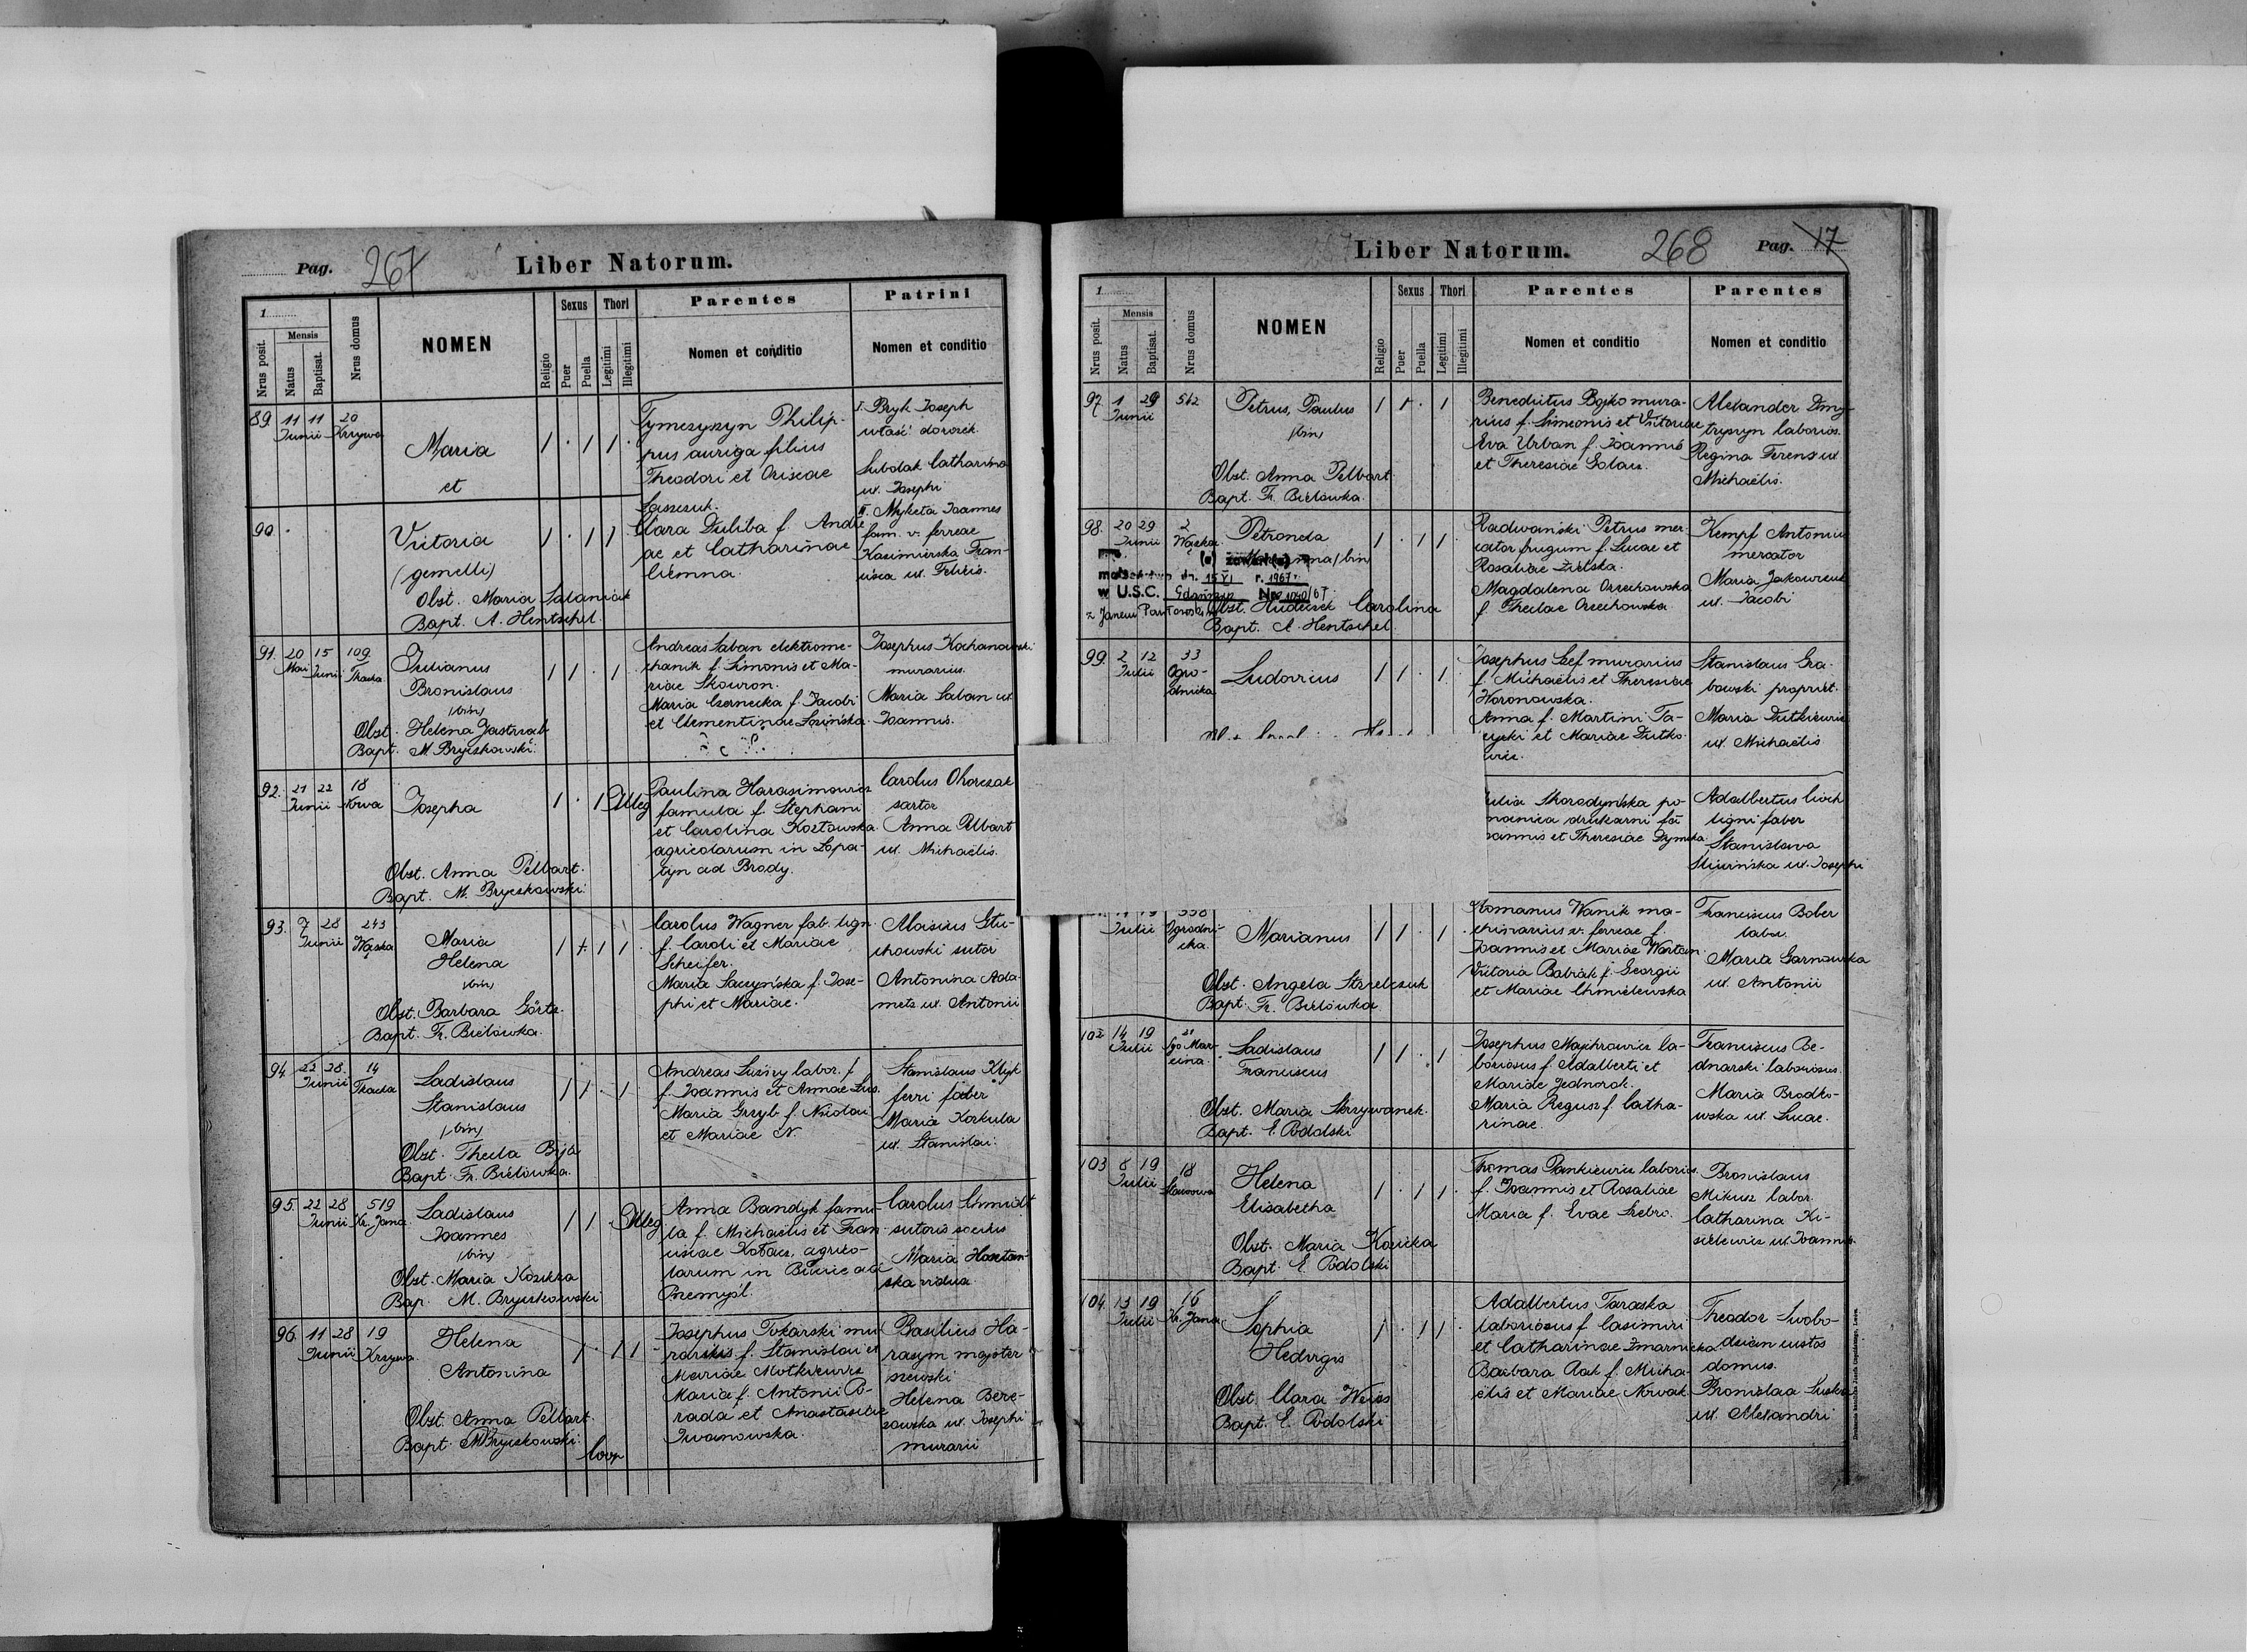 Pag. 267
Liber Natorum.
1
Nrus posit.
Mensis
Natus
Baptisat.
Nrus domus
NOMEN
Religio
Sexus
Puer
Puella
Thori
Legitimi
Illegitimi
Parentes
Nomen et conditio
Patrini
Nomen et conditio
89. 11 11 20
Junii Krzywa
Maria
et
Tymczyszyn Philip-
pus auriga filius
Theodori et
I. Bryk Joseph
właśc dorożek
Catharina
ux. Josephi
90
Victoria
(gemelli)
Obst. Maria
Bapt. A. Hentschel.
Clara Duliba f. Andre
ae et Catharinae
II. Myketa Joannes
fam. v. ferreae
Kasimirska Fran-
cisca ux. Felicis.
91. 20 15 109
Maii Junii Tkacka
Julianus
Bronislaus
(bin)
Obst. Helena Jastrząb
Bapt. M. Bryczkowski
Andreas Saban elektrome-
chanik f. Simonis et Ma-
riae Skouron.
Maria Czernecka f. Jacobi
et Clementinae
Josephus Kochanowski
murarius.
Maria Saban ux.
Joannis.
92. 21 22 18
Junii
Josepha
Illeg
Obst. Anna Pelbart.
Bapt. M. Bryczkowski.
Paulina Harasimowicz
famula f. Stephani
et Carolina Kozłowska
agricolarum in Lopa-
tyn ad Brody.
Carolus
sartor
Anna Pelbart
ux. Michaëlis.
93. 7 28 243
Junii Wąska
Maria
Helena
(bin)
Obst. Barbara Görtz.
Bapt. Fr. Bielówka.
Carolus Wagner fab. lign.
f. Caroli et Mariae
Scheifer.
Maria Saczyńska f. Jose-
phi et Mariae.
Aloisius Głu-
chowski sutor
Antonina Ada-
metz ux. Antonii
94. 22 28. 14
Junii Tkacka
Ladislaus
Stanislaus
(bin)
Obst. Thecla
Bapt. Fr. Bielówka.
Andreas labor. f
f. Joannis et Annae
Maria Grzyb f. Nicolai
et Mariae N.
Stanislaus Kłyk
ferri faber
Maria Korkula
ux. Stanislai.
95. 22 28 519
Junii Kr. Jana
Ladislaus
Joannes
(bin)
Illeg
Obst. Maria
Bap. M. Bryczkowski
Anna Bandyk famu-
la f. Michaëlis et Fran-
ciscae agrico-
larum in ad
Przemyśl.
Carolus Schmidt
sutoris socius
Maria
ska vidua.
96. 11 28 19
Junii Krzywa.
Helena
Antonina
Obst. Anna Pelbart.
Bapt. M. Bryczkowski.
Josephus Tokarski mu
rarius f. Stanislai et
Mariae
Maria f. Antonii Po-
rada et Anastasiae
Iwanowska.
Basilius Ha-
rasym majster
szewski
Helena Bere-
zowska ux. Josephi
murarii
Liber Natorum.
268
Pag. 17
1
Nrus posit.
Mensis
Natus
Baptisat.
Nrus domus
NOMEN
Religio
Sexus
Puer
Puella
Thori
Legitimi
Illegitimi
Parentes
Nomen et conditio
Parentes
Nomen et conditio
97 1 29 512
Junii
Petrus, Paulus
(bin)
Obst. Anna Pelbart
Bapt. Fr. Bielówka.
Benedictus Bojko mura-
rius f. Simeonis et Victoriae
Eva Urban f. Joannis
et Theresiae
Alexander Dmy-
tryszyn laborios.
Regina Ferenz ux.
Michaëlis.
98. 20 29 2
Junii Wąska
Petronela
(bin)
15 VI r. 1967
w U.S.C. Gdańsku Nr 1040/67
z Janem
Obst. Hudeczek Carolina
Bapt. A. Hentschel.
Radwański Petrus mer-
cator frugum f. Lucae et
Rosaliae Zielska.
Magdalena Orzechowska
f. Theclae Orzechowska
Kempf Antonius
mercator
Maria
ux. Jacobi
99. 2 12 33
Julii Ogro-
dnicka
Ludovicus
Josephus Szef murarius
f. Michaëlis et Theresiae
Woronowska.
Anna f. Martini Ta-
et Mariae Dutko-
wicz.
Stanislaus Gra-
bowski propriet.
Maria Dutkiewicz
ux. Michaëlis
Skorodyńska po-
drukarni
et Theresiae
Adalbertus
ligni faber
Stanislawa
Śliwińska ux. Josephi
19 558
Julii Ogrodni-
cka.
Marianus
Obst. Angela Strzelczuk
Bapt. Fr. Bielówka
Romanus Wanik ma-
chinarius v. ferreae f.
Joannis et Mariae
Victoria Babiak f. Georgii
et Mariae Chmielewska
Franciscus Bober
labor.
Maria
ux. Antonii
102 14 19 21
Julii Sgo Mar-
cina.
Ladislaus
Franciscus
Obst. Maria Skrzywanek.
Bapt. E. Podolski
Josephus Majchrowicz la-
boriosus f. Adalberti et
Mariae Jednorok.
Maria Regusz f. Catha-
rinae.
Franciscus Be-
dnarski laboriosus.
Maria Brodko-
wska ux. Lucae.
103 8 19 18
Julii
Helena
Elisabetha
Obst. Maria Kozicka
Bapt. E. Podolski
Thomas Pankiewicz laborios.
f. Joannis et Rosaliae
Maria f. Evae Srebro.
Bronislaus
Mikusz labor.
Catharina Ki-
sielewicz ux. Joannis.
104. 13 19 16
Julii Kr. Jana
Sophia
Hedvigis
Obst. Clara Weiss
Bapt. E. Podolski
Adalbertus Taraska
laboriosus f. Casimiri
et Catharinae
Barbara Rak f. Micha-
ëlis et Mariae Nowak.
Theodor Swobo-
dzian custos
domus.
Bronislaa
ux. Alexandri